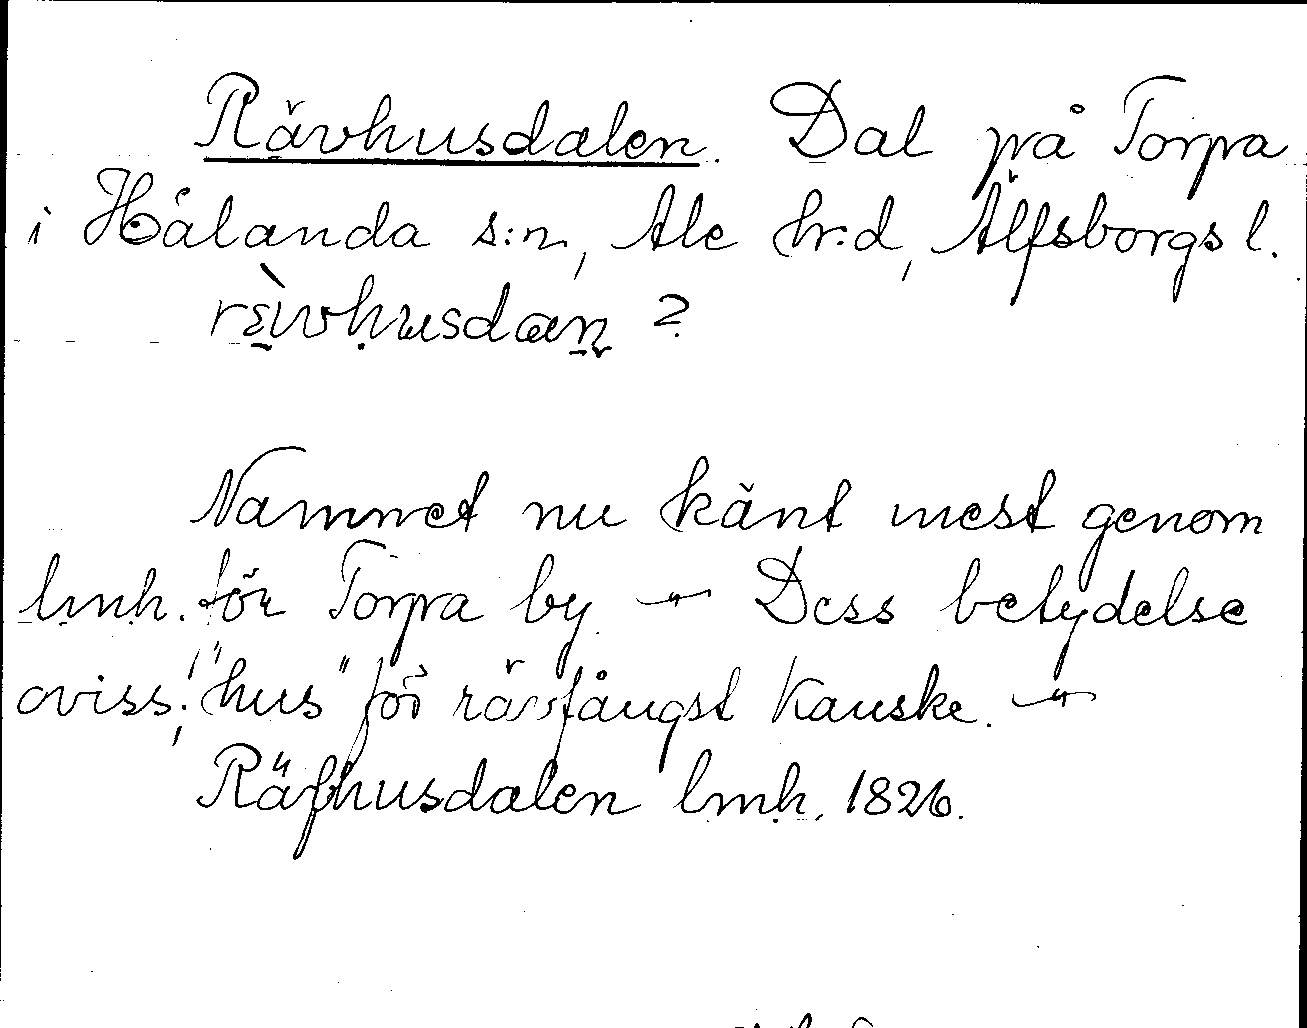 Rävhusdalen. Dal på Torpa
i Hålanda s:n, Ale hr:d, Älfsborgs l.
Namnet nu känt mest genom
lmh. för Torpa by. — Dess betydelse
oviss; "hus" för rävfångst kanske. —
Räfhusdalen lmh. 1826.